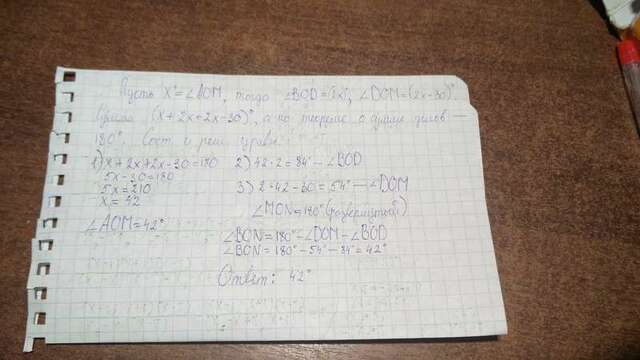 Пусть X°=∠AOM, тогда ∠BOD=(2x)°, ∠DOM=(2x-30)°.
(x+2x+2x-30)°, а по теореме о сумме углов —
180°. Сост. и реш. уравн.
1) x+2x+2x-30=180
5x-30=180
5x=210
x=42
∠AOM=42°
2) 42·2=84° — ∠BOD
3) 2·42-30=54° — ∠DOM
∠MON=180° (развернутый)
∠BON=180°-∠DOM-∠BOD
∠BON=180°-54°-84°=42°
Ответ: 42°